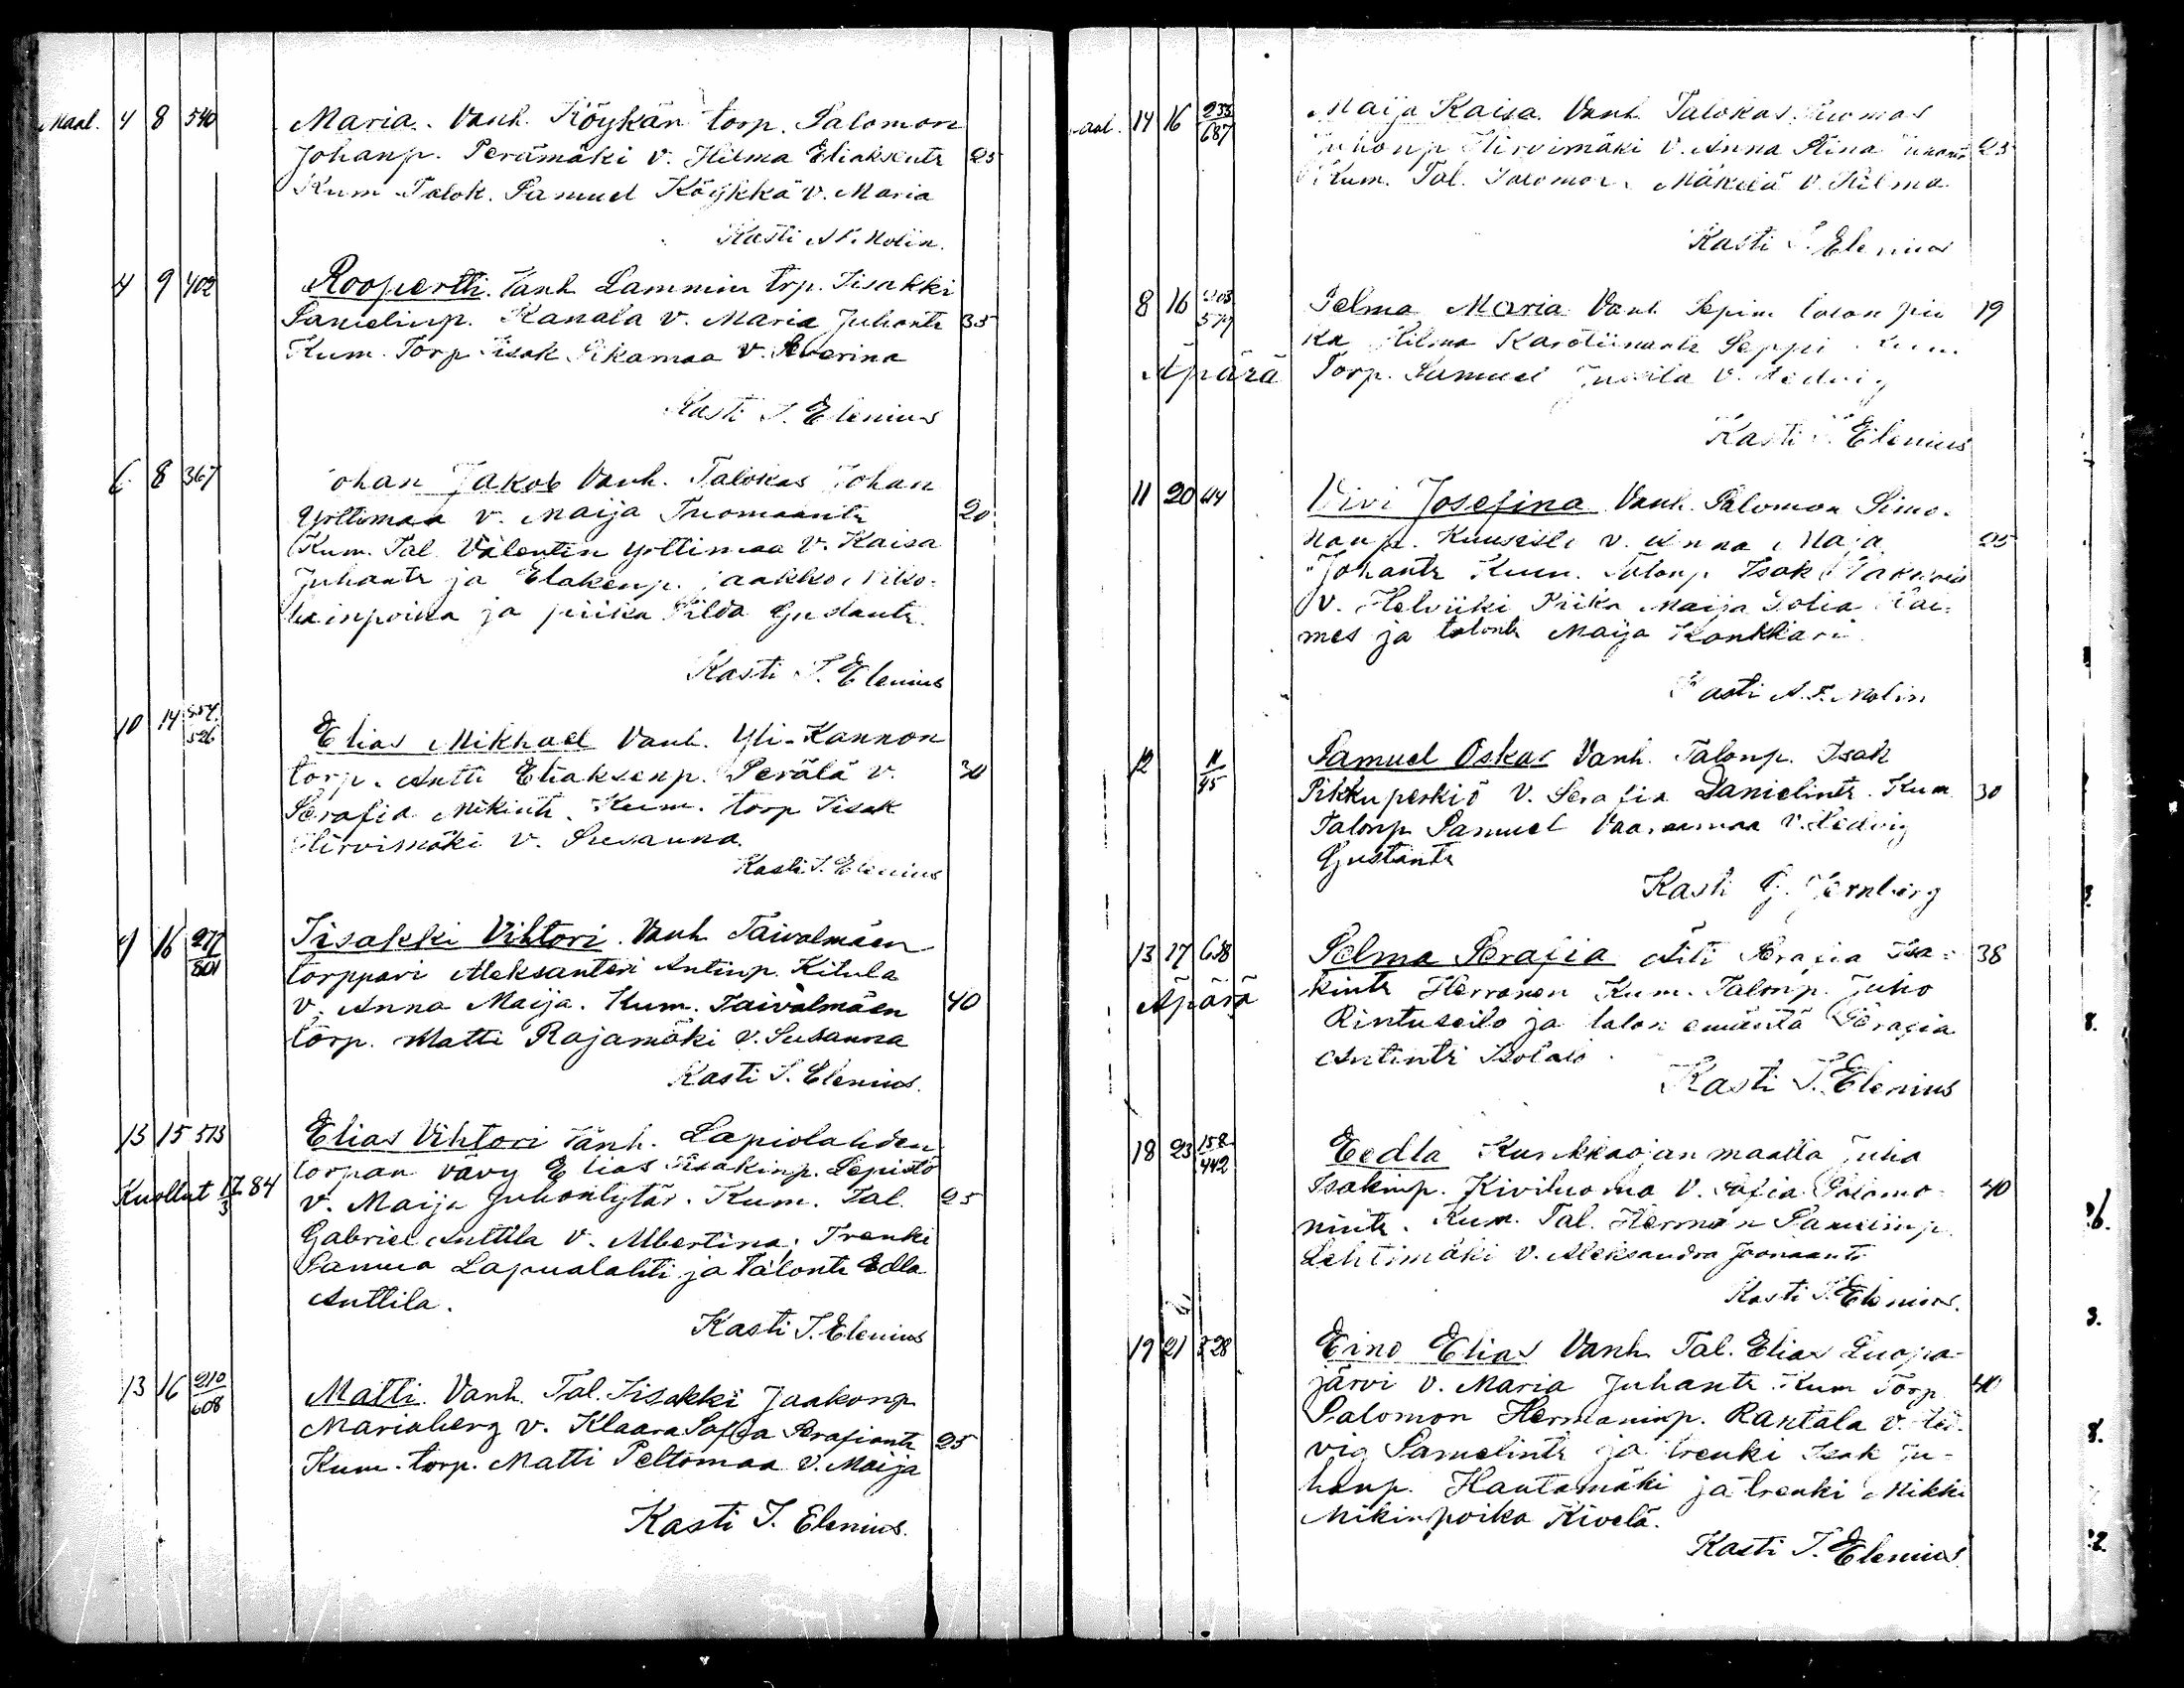 Maal. 4 8 540 Maria. Vanh. Köykän torp. Salomon
Johanp. Perämäki v. Hilma Eliaksentr 25
Kum Talok. Samuel Köykkä v. Maria
Kasti A.F. Molin.
4 9 402 Roopertti. Vanh. Lammin trp. Iisakki
Samelinp. Kanala v. Maria Juhontr 35
Kum. Torp Iisak Sikamaa v. Severina
Kasti I. Elenius
6 8 367 Johan Jakob Vanh. Talokas Johan
Yrttimaa v. Maija Tuomaantr 20
Kum. Tal. Valentin Yrttimaa v. Kaisa
Juhantr ja Elakenp. Jaakko Niko-
lainpoika ja piika Hilda Gustantr.
Kasti I. Elenius
10 14 554/526 Elias Mikhael Vanh. Yli-Kannon
torp. Antti Eliaksenp. Perälä v. 30
Serafia Mikintr. Kum. torp Iisak
Hirvimäki v. Susanna.
Kasti I. Elenius
9 16 277/801 Iisakki Vihtori. Vanh Taivalmäen
torppari Aleksanteri Antinp. Kitula
v. Anna Maija. Kum. Taivalmäen 40
torp. Matti Rajamäki v. Susanna
Kasti I. Elenius.
13 15 513 Elias Vihtori Vanh. Lapiolahden
torpan vävy Elias Iisakinp. Sepistö
Kuollut 17/3 84 v. Maija Juhontytär. Kum. Tal. 25
Gabriel Anttila v. Albertina; Trenki
Samua Lapualahti ja talontr Edla
Anttila.
Kasti I. Elenius
13 16 210/608 Matti. Vanh. Tal. Iisakki Jaakonp
Mariaberg v. Klaara Sofia Serafiantr 25
Kum. torp. Matti Peltomaa v. Maija
Kasti I. Elenius.
aal. 14 16 235/687 Maija Kaisa. Vanh. Talokas Tuomas
Juhonp Hirvimäki v. Anna Stina 25
Kum. Tal. Salomon Mäkelä v. Hilma
Kasti I. Elenius
8 16 203/579 Selma Maria Vanh. Sepin talon pii 19
ka Hilma Karoliinantr Seppi Kum.
Äpärä Torp. Samuel Jussila v. Hedvig
Kasti I. Elenius
11 20 44 Vivi Josefina Vanh. Salomon Simo-
nanp. Kuusisto v. Anna Maja 25
Johantr Kum. Talonp Isak
v. Helviiki Piika Maija Sofia Rai-
mes ja talontr Maija Konkkari.
Kasti A.F. Molin
12 11/45 Samuel Oskar Vanh. Talonp. Isak
Pikkuperkiö v. Serafia Danielintr. Kum 30
Talonp Samuel Vaaramaa v. Hedvig
Gustantr
Kasti G. Jernberg
13 17 638 Selma Serafia Äiti Serafia Isa- 38
Äpärä kintr Herranen Kum. Talonp. Juho
Rintuseilo ja talon emäntä Serafia
Antintr Isotalo.
Kasti I. Elenius
18 23 158/442 Eedla Kurkkaojan maalla Juha
Isakinp. Kiviluoma v. Sofia Salomo- 40
nintr. Kum. Tal. Herman Samelinp.
Lehtimäki v. Aleksandra Joonaantr
Kasti I. Elenius.
19 21 528 Eino Elias Vanh. Tal. Elias Luopa-
järvi v. Maria Juhantr. Kum Torp 40
Salomon Hermaninp. Rantala v. Hed-
vig Samelintr ja trenki Isak Ju-
hanp. Hautamäki ja trenki Mikki
Mikinpoika Kivelä.
Kasti I. Elenius